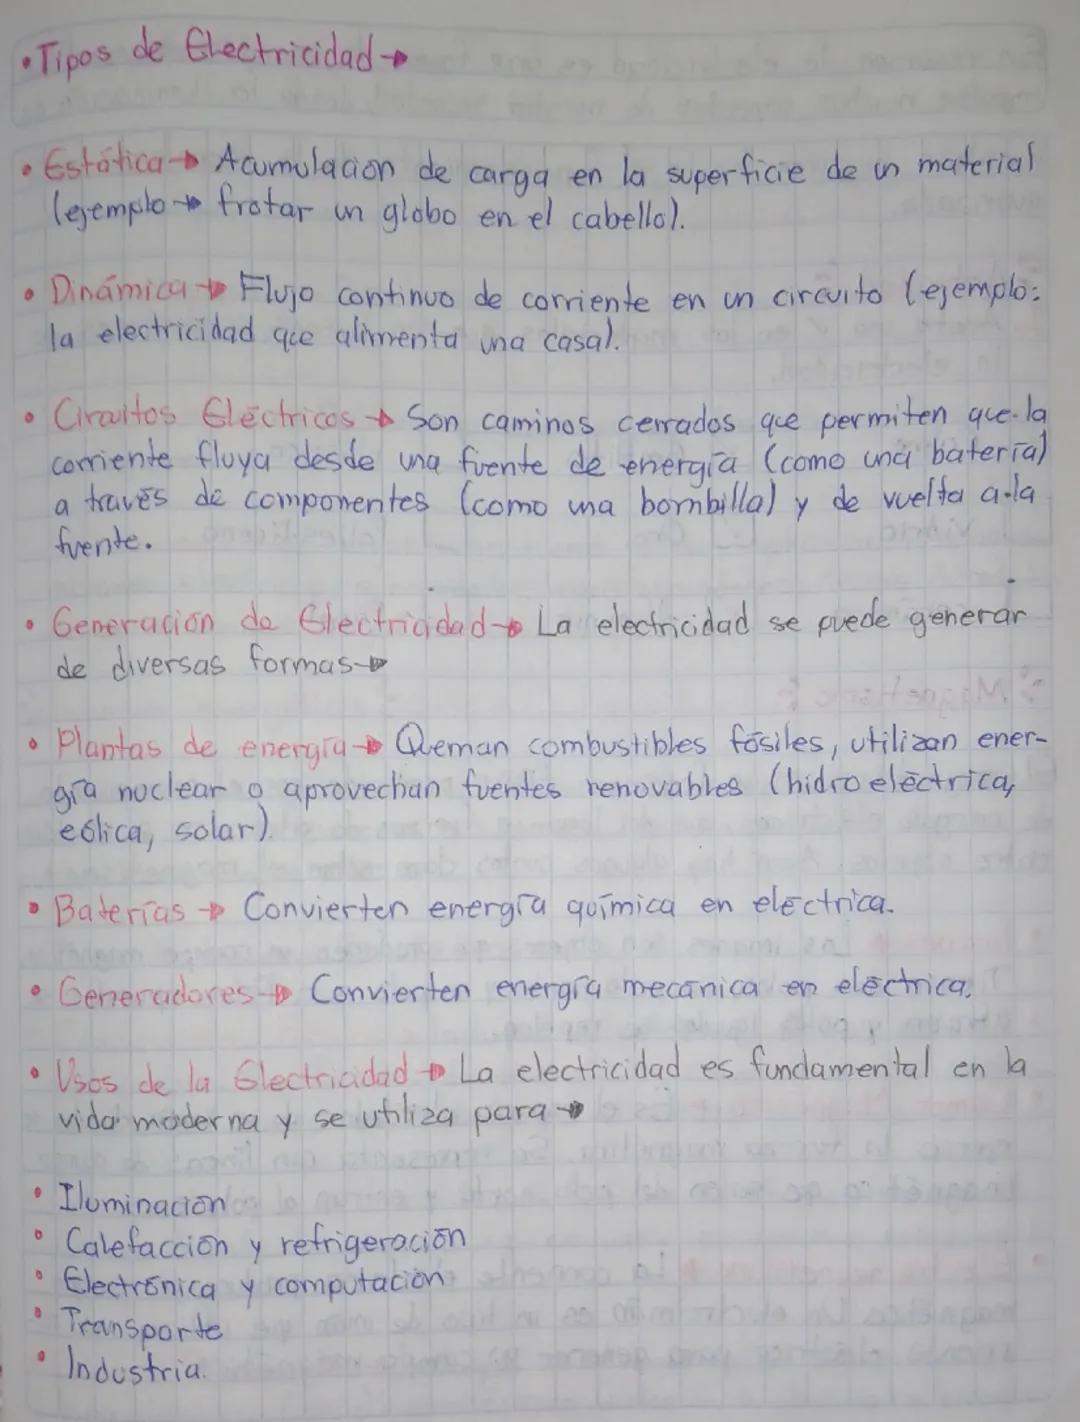 • Tipos de Electricidad →
• Estática → Acumulación de carga en la superficie de un material
(ejemplo → frotar un globo en el cabello).
• Dinámica → Flujo continuo de corriente en un circuito (ejemplo:
la electricidad que alimenta una casa).
• Circuitos Eléctricos → Son caminos cerrados que permiten que la
corriente fluya desde una fuente de energía (como una batería)
a través de componentes (como una bombilla) y de vuelta a la
fuente.
• Generación de Electricidad → La electricidad se puede generar
de diversas formas →
• Plantas de energía → Queman combustibles fósiles, utilizan ener-
gía nuclear o aprovechan fuentes renovables (hidroeléctrica,
eólica, solar).
• Baterías → Convierten energía química en eléctrica.
• Generadores → Convierten energía mecánica en eléctrica.
• Usos de la Electricidad → La electricidad es fundamental en la
vida moderna y se utiliza para →
• Iluminación
• Calefacción y refrigeración
• Electrónica y computación
• Transporte
• Industria.